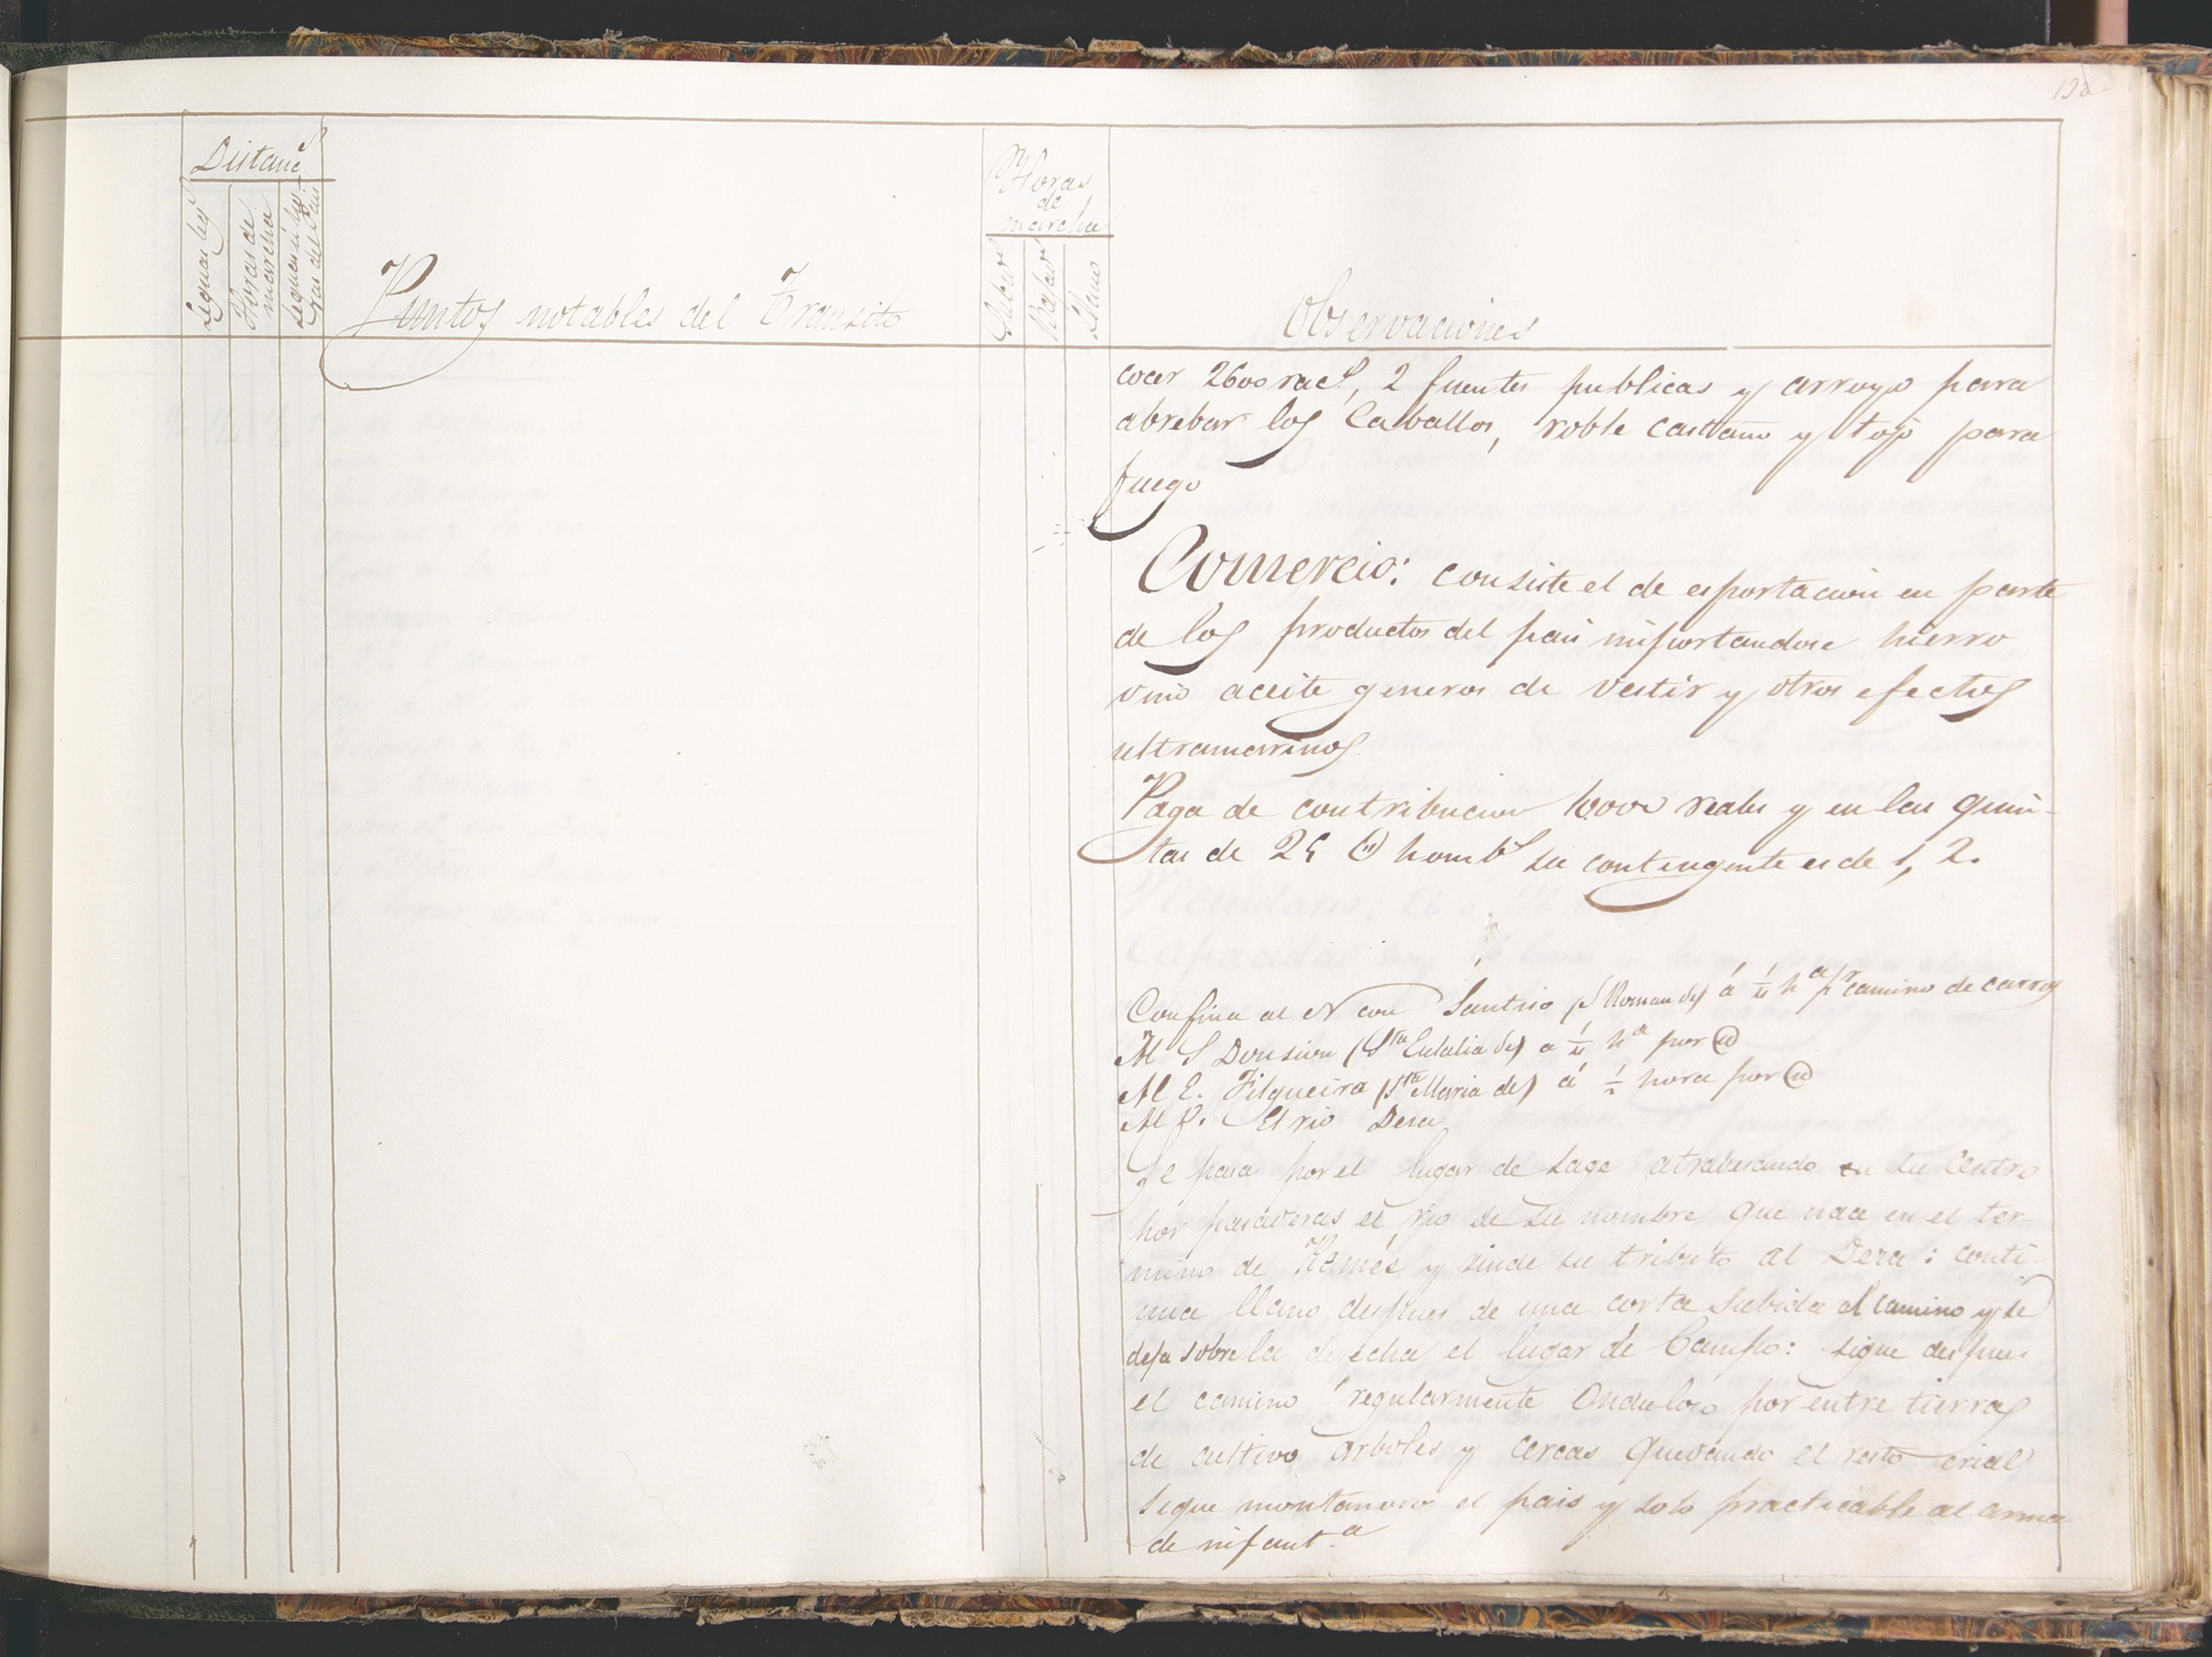 Distanc.s
Leguas leg.s
Horas de
marcha
Leguas ú ho-
ras del Pais
Puntos notables del Transito
Horas
de
marcha
Subir
Bajar
Llano
Observaciones
cocer 2600 rac.s, 2 fuentes publicas y arroyo para
abrebar los Caballos, roble castaño y tojo para
fuego
Comercio: consiste el de esportacion en parte
de los productos del pais importandose hierro
vino aceite generos de vestir y otros efectos
ultramarinos.
Paga de contribucion 10000 reales y en las quin-
tas de 25 (11) homb.s su contingente es de 1, 2.
Confina al N con Santiso (S. Roman de) á h.a p.r camino de carros
Al S Donsion (S.ta Eulalia de) a h.a por (id)
Al E. Filgueira (S.ta Maria de) á 1/2 hora por (id)
Al P. El rio Deza
Se pasa por el lugar de Lage atrabesando en su centro
por pasaderas el rio de su nombre que nace en el ter-
mino de y rinde su tributo al Deza: conti-
nua llano despues de una corta subida el camino y se
deja sobre la derecha el lugar de Campo: sigue despues
el camino regularmente onduloso por entre tierras
de cultivo arboles y cercas quedando el resto erial
Sigue montañoso el pais y solo practicable al arma
de infant.a